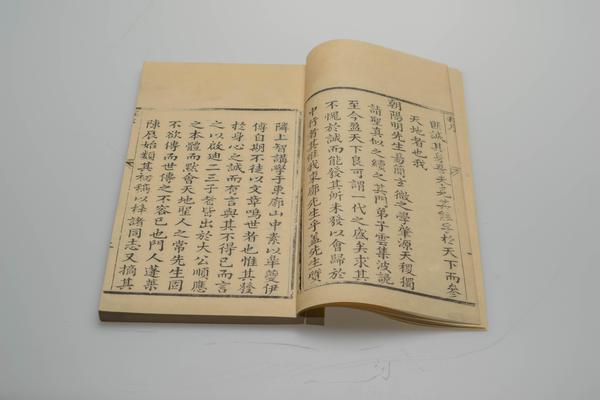 匪誠其身 於天下而參
天地者也我
朝陽明先生易簡 之學肇源天稷獨
聖真 之續其門弟子雲集波
至今盈天下良可謂一代之盛矣求其
不愧於誠而能發其所未發以會歸於
中行者其惟我東廓先生乎蓋先生質
隣上智講學于東廓山中素以皐夔伊
傅自期不徒以文章鳴世者也惟其發
於身心之誠而有言與其不得已而言
之以啟迪二三子者皆出於大公順應
之本體而默會天地聖人之常先生固
不欲傳而世傳之不容已也門人蓬萊
陳辰始類其初稿以梓諸同志又摘其